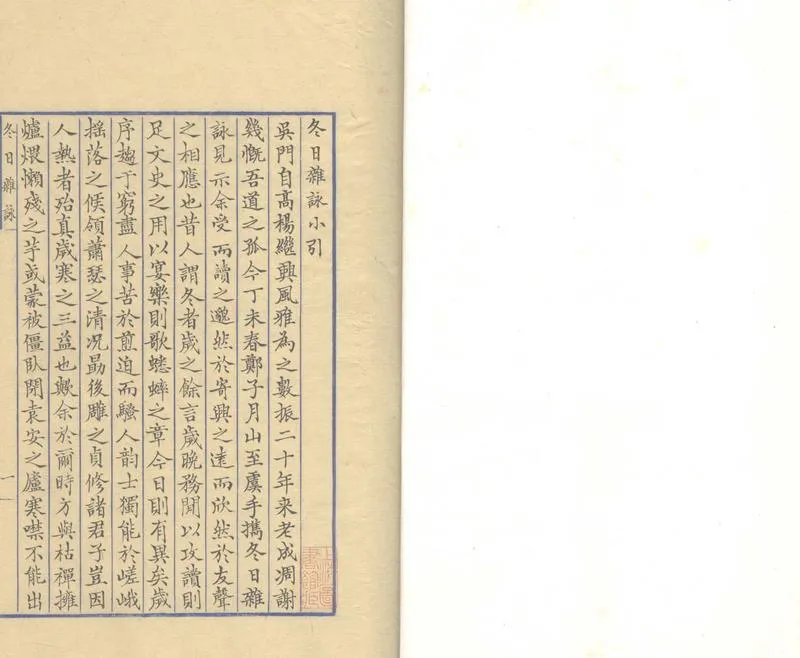 冬日雜詠小引
吳門自高楊繼興風雅為之數振二十年来老成凋謝
幾慨吾道之孤今丁未春鄭子月山至虞手攜冬日雜
詠見示余受而讀之邈然於寄興之遠而欣然於友聲
之相應也昔人謂冬者歲之餘言歲晚務閒以攻讀則
足文史之用以宴樂則歌蟋蟀之章今日則有異矣歲
序趨于窮盡人事苦於煎迫而騷人韵士獨能於嵯峨
揺落之候領蕭瑟之清况勗後雕之貞修諸君子豈因
人熱者殆真歲寒之三益也歟余於爾時方與枯禪擁
爐煨懶殘之芋或蒙被僵臥閉袁安之廬寒噤不能出
冬日雜詠
一